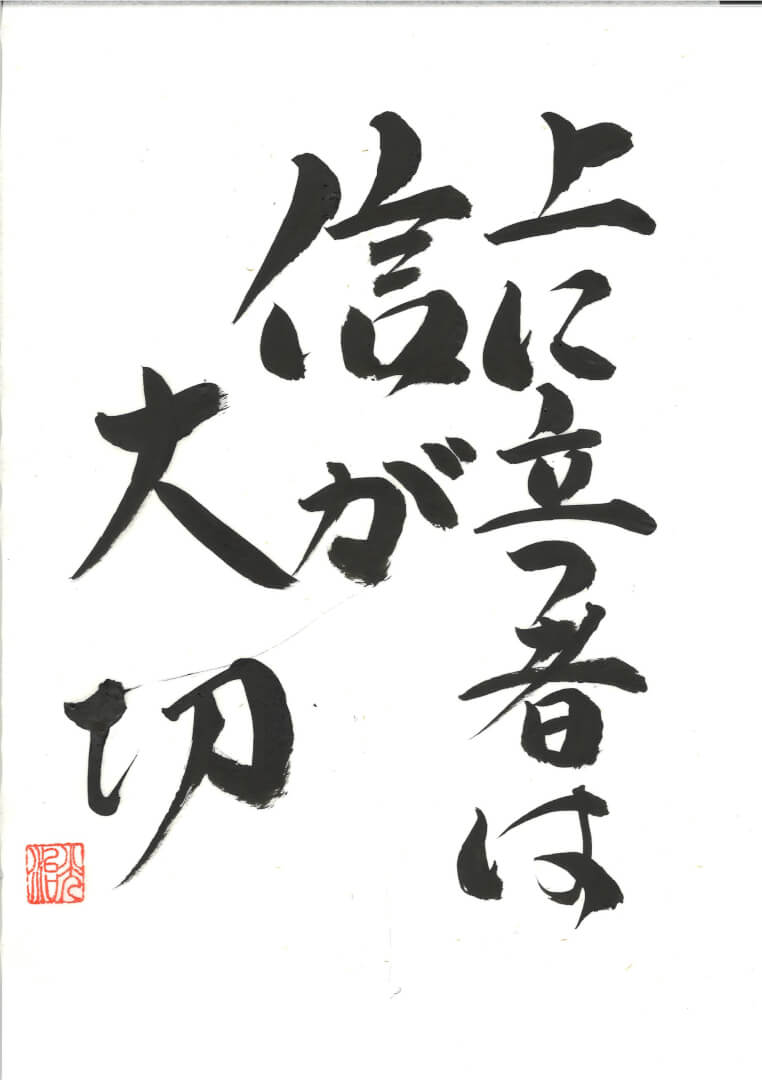 上に立つ者は
信が
大切